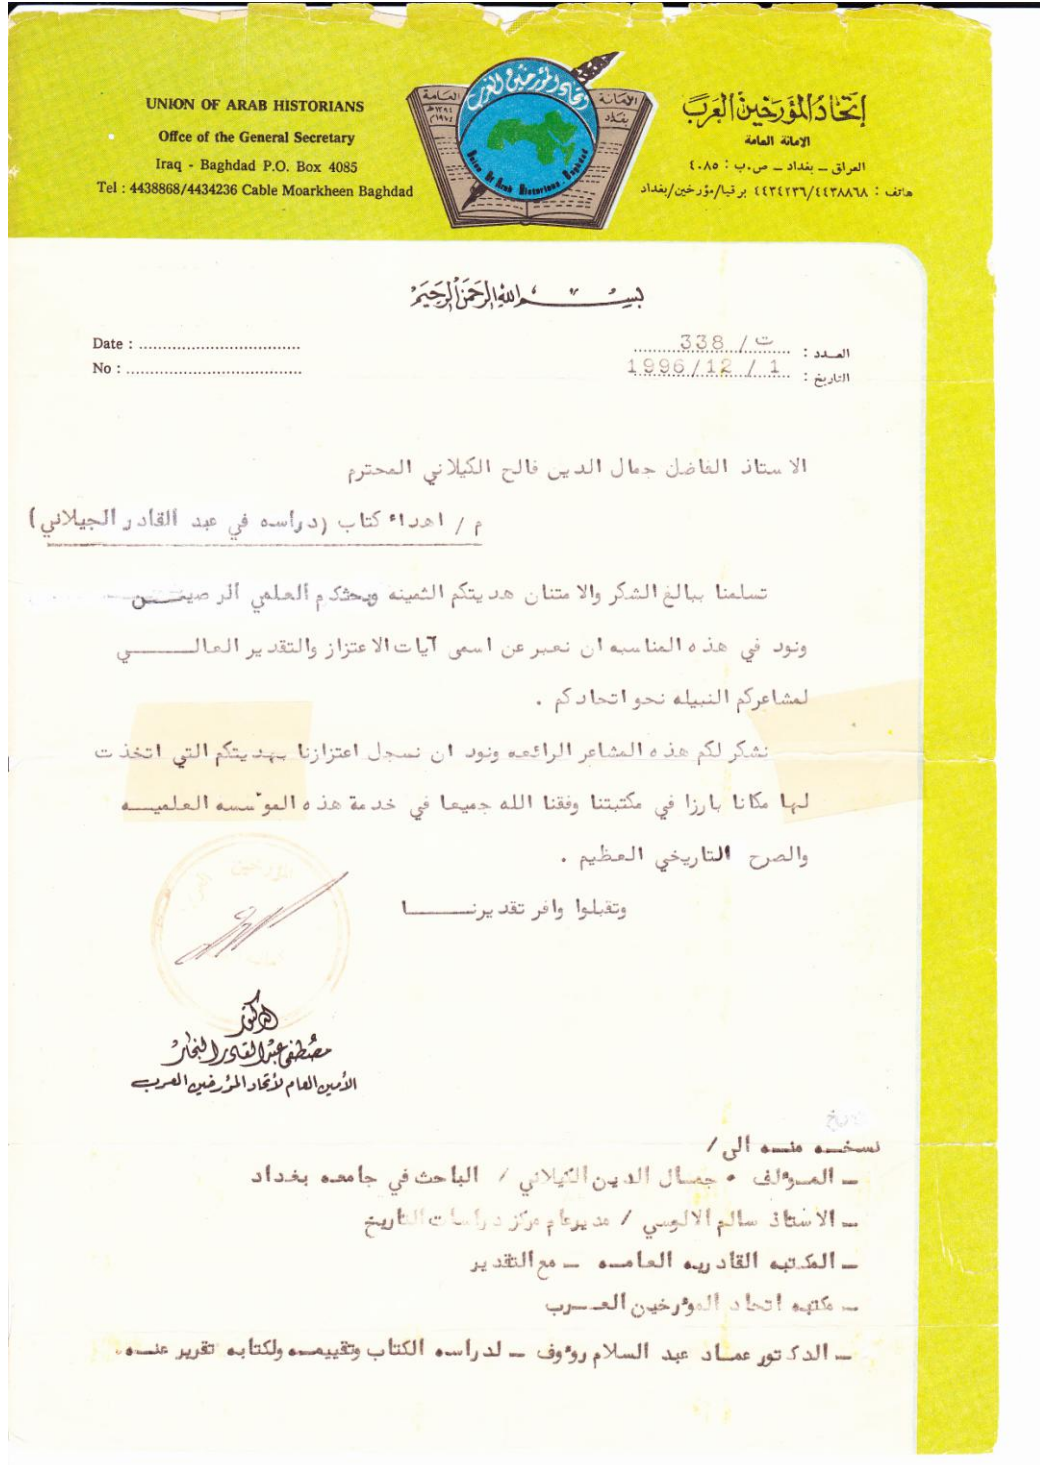 UNION OF ARAB HISTORIANS
Offce of the General Secretary
Iraq - Baghdad P.O. Box 4085
Tel : 4438868/4434236 Cable Moarkheen Baghdad
اتحاد المؤرخين العرب
الامانة العامة
بغداد
العامة
Union Of Arab Historians, Baghdad
إتحاد المؤرخين العرب
الامانة العامة
العراق ـ بغداد ـ ص.ب : ٤٠٨٥
هاتف : ٤٤٣٤٢٣٦/٤٤٣٨٨٦٨ برقيا/مؤرخين/بغداد
بسم الله الرحمن الرحيم
Date :
No :
العدد : ت/ 338
التاريخ : 1 / 12/ 1996
الاستاذ الفاضل جمال الدين فالح الكيلاني المحترم
م / اهداء كتاب (دراسه في عبد القادر الجيلاني)
تسلمنا ببالغ الشكر والامتنان هديتكم الثمينه وبحثكم العلمي الرصيــن
ونود في هذه المناسبه ان نعبر عن اسمى آيات الاعتزاز والتقدير العالـــــي
لمشاعركم النبيله نحو اتحادكم .
نشكر لكم هذه المشاعر الرائعه ونود ان نسجل اعتزازنا بهديتكم التي اتخذت
لها مكانا بارزا في مكتبتنا وفقنا الله جميعا في خدمة هذه المؤسسه العلميــه
والصرح التاريخي العظيم .
وتقبلوا وافر تقديرنــــــا
الدكتور
مصطفى عبد القادر النجار
الأمين العام لأتحاد المؤرخين العرب
نسخــه منــه الى /
ـ المـؤلف . جمـال الدين الكيلاني / الباحث في جامعه بغداد
ـ الاستاذ سالم الالوسي / مدير عام مركز دراسات التاريخ
ـ المكتبه القادريه العامــه ـ مع التقدير
ـ مكتبه اتحاد المؤرخين العــرب
ـ الدكتور عمـاد عبد السلام رؤوف ـ لدراسه الكتاب وتقييمــه ولكتابه تقرير عنــه.